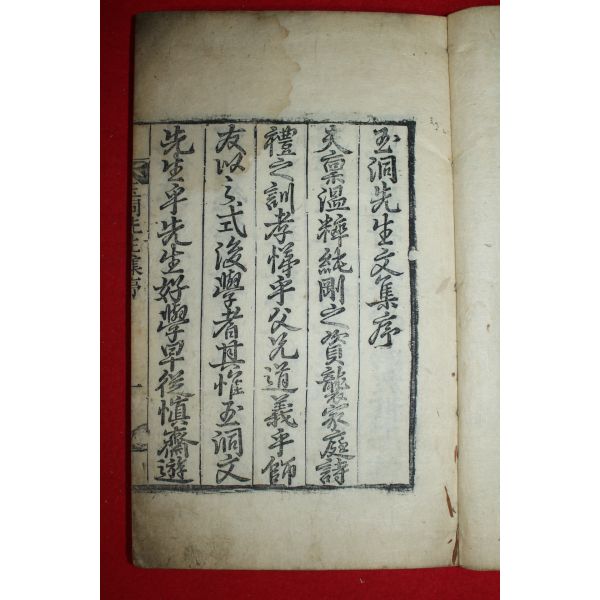 玉洞先生文集序
天稟溫粹純剛之資襲家庭詩
禮之訓孝悌乎父兄道義乎師
友以式後學者其惟玉洞文
先生乎先生好學早從愼齋遊
玉洞先生集序 一